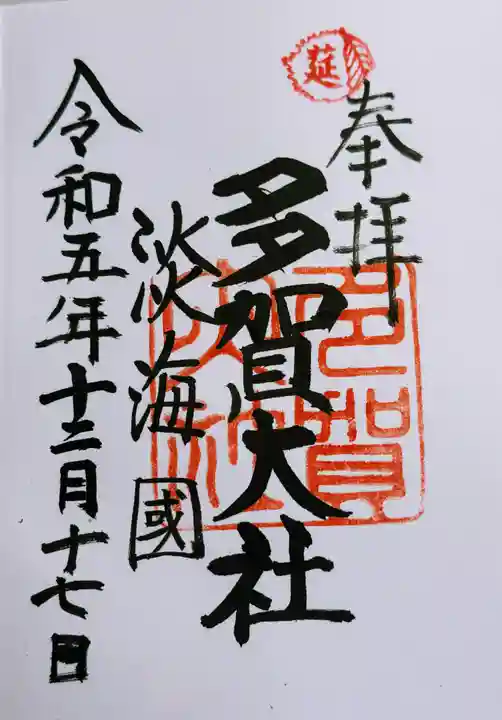 莚
奉拝
多賀大社
多賀大社
淡海國
令和五年十二月十七日